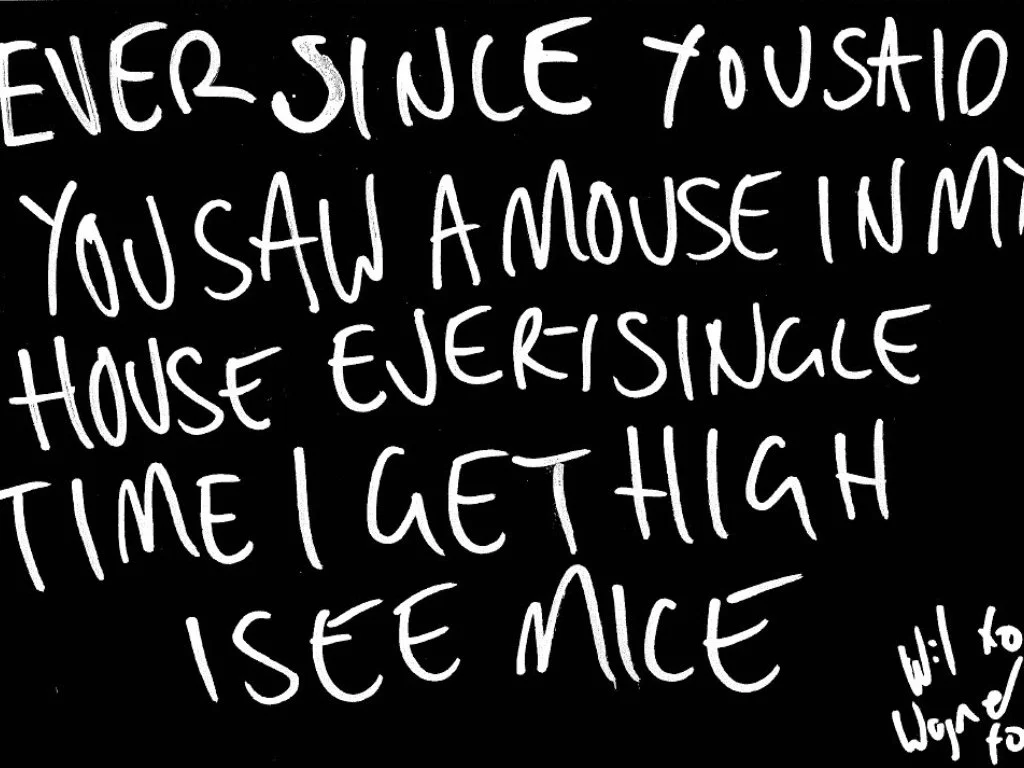 EVER SINCE YOU SAID
YOU SAW A MOUSE IN MY
HOUSE EVERY SINGLE
TIME I GET HIGH
I SEE MICE
Wil
Wagner